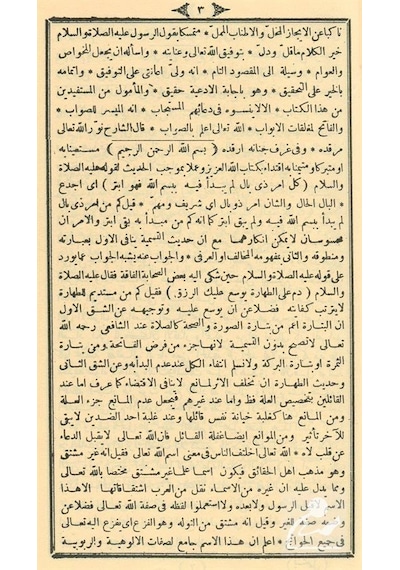 ﴿ ٣ ﴾
ناكبا عن الايجاز المخل * والاطناب الممل * متمسكا بقول الرسول عليه الصلاة والسلام
خير الكلام ما قل ودل * بتوفيق الله تعالى وعنايته * واسأله ان يجعل للخواص
والعوام * وسيلة الى المقصود التام * انه ولى اعانتى على التوفيق * واتمامه
بالخير على التحقيق * وهو باجابة الادعية حقيق * والمأمول من المستفيدين
من هذا الكتاب * الا لا ينسوه فى دعائهم المستجاب * انه الميسر للصواب *
والفاتح لمغلقات الابواب * الله تعالى اعلم بالصواب * قال الشارح نور الله تعالى
مرقده * وفى غرف جنانه ارقده ( بسم الله الرحمن الرحيم ) مستعينا به
او متبركا و متيمنا به اقتداء بكتاب الله العزيز وعملا بموجب الحديث لقوله عليه الصلاة
والسلام ( كل امر ذى بال لم يبدأ فيه ببسم الله فهو ابتر ) اى اجدع
* البال الحال والشان امر ذو بال اى شريف ومهم * قيل كم من امر ذى بال
لم يبدأ ببسم الله فيه ولم يبق ابتر كما انه كم من مبدء به بقى ابتر والامر ان
محسوسان لا يمكن انكارهما مع ان حديث التسمية ينافى الاول بعبارته
ومنطوقه والثانى بمفهومه المخالف او العرفى * والجواب عنه يشبه الجواب عما يورد
على قوله عليه الصلاة والسلام حين شكى اليه بعض الصحابة الفاقة فقال عليه الصلاة
والسلام ( دم على الطهارة يوسع عليك الرزق ) فقيل كم من مستديم للطهارة
لا يترتب كفايته فضلا عن ان يوسع عليه وتوجيهه عن الشق الاول
ان البتارة اعم من بتارة الصورة والصحة كالصلاة عند الشافعى رحمه الله
تعالى لا تصح بدون التسمية لانها جزء من فرض الفاتحة ومن بتارة
الثمرة او بتارة البركة ولا نسلم انتفاء الكل عند عدم البدأ به وعن الشق الثانى
وحديث الطهارة ان تخلف الاثر لمانع لا ينافى الاقتضاء كما عرف اما عند
القائلين بتخصيص العلة فظ واما عند غيرهم فيجعل عدم المانع جزء العلة
ومن المانع هنا كغلبة خباثة نفس قائلها وعند غلبة احد الضدين لا يبقى
للآخر تأثير ومن الموانع ايضا غفلة القائل فان الله تعالى لا يقبل الدعاء
عن قلب لاه * الله تعالى اختلف الناس فى معنى اسم الله تعالى فقيل انه غير مشتق
وهو مذهب اهل الحقائق فيكون اسما علما غير مشتق مختصا بالله تعالى
ومما يدل عليه ان غيره من الاسماء نقل من العرب اشتقاقاتها الا هذا
الرسول ولا بعده ولا استعملوا لفظه فى صفة الله تعالى فضلا عن
الغير وقيل انه مشتق من التوله وهو الفزع اى يفزع اليه تعالى
فى جميع * اعلم ان هذا الاسم جامع لصفات الالوهية والربوبية